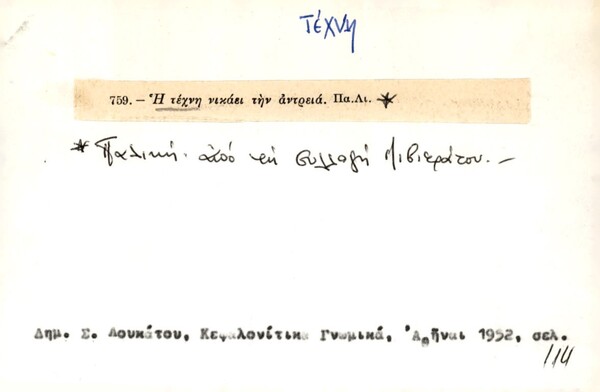 ΤΕΧΝΗ
759. — Ἡ τέχνη νικάει τὴν ἀντρειά. Πα.Λι. *
* Παλική. ἀπό τή συλλογή Λιβιεράτου. —
Δημ. Σ. Λουκάτου, Κεφαλονίτικα Γνωμικά, Ἀθῆναι 1952, σελ.
114